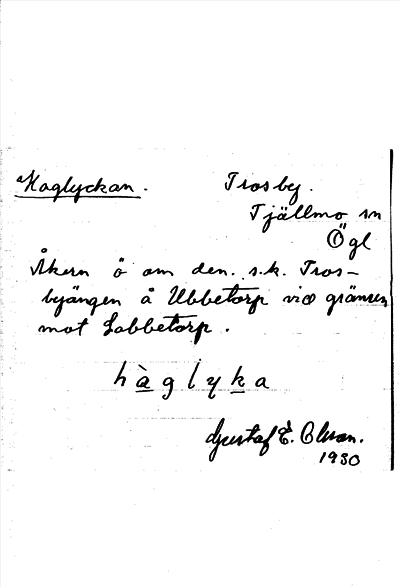 Haglyckan. Trosby.
Tjällmo sn
Ögl
Åkern ö om den s.k. Tros-
byängen å Ubbetorp vid gränsen
mot Labbetorp.
hàglyka
Gustaf E. Olsson.
1930